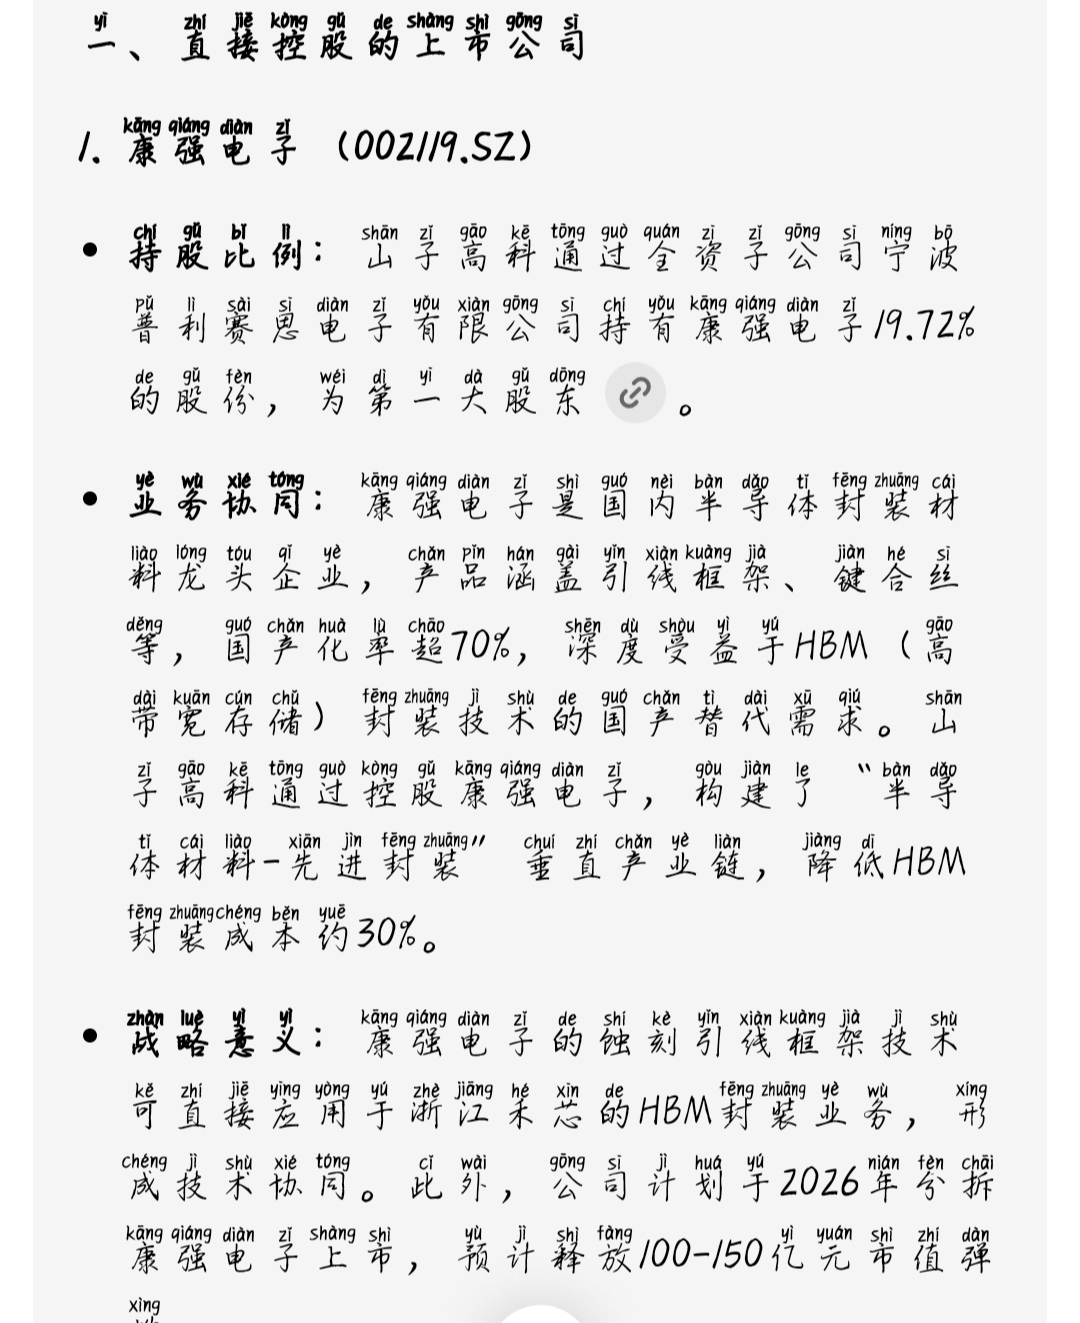 一、直接控股的上市公司
1. 康强电子（002119.SZ）
• 持股比例：山子高科通过全资子公司宁波
普利赛思电子有限公司持有康强电子19.72%
的股份，为第一大股东。
• 业务协同：康强电子是国内半导体封装材
料龙头企业，产品涵盖引线框架、键合丝
等，国产化率超70%，深度受益于HBM（高
带宽存储）封装技术的国产替代需求。山
子高科通过控股康强电子，构建了“半导
体材料-先进封装”垂直产业链，降低HBM
封装成本约30%。
• 战略意义：康强电子的蚀刻引线框架技术
可直接应用于浙江禾芯的HBM封装业务，形
成技术协同。此外，公司计划于2026年分拆
康强电子上市，预计释放100-150亿元市值弹